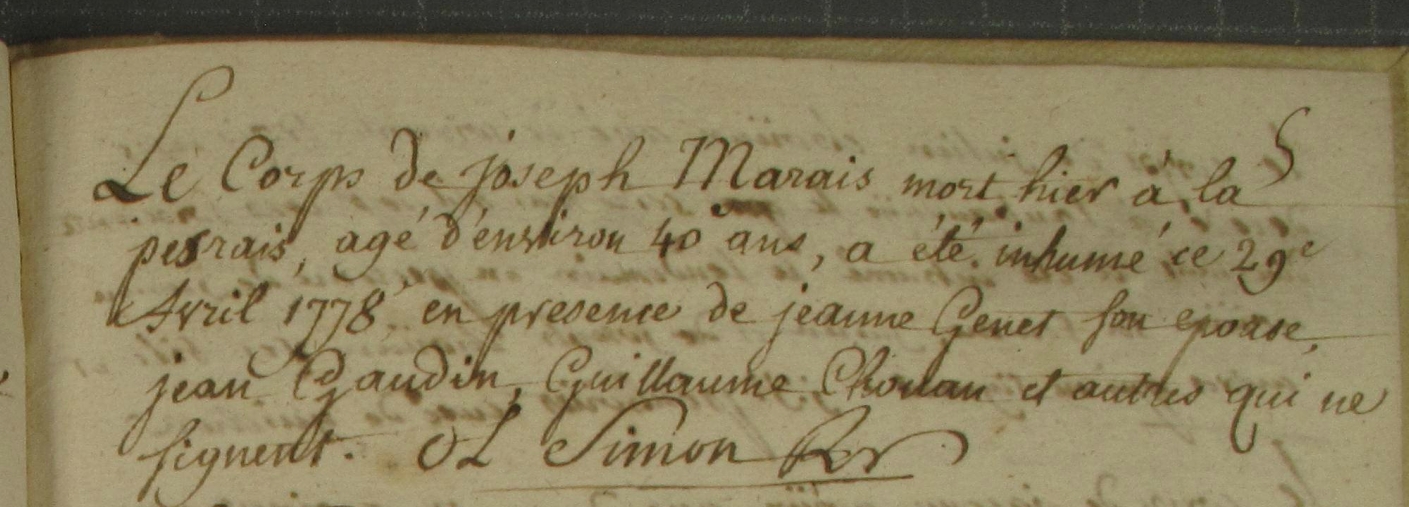 Le Corps de joseph Marais mort hier à la
pesrais, agé d'environ 40 ans, a été inhumé ce 29e
Avril 1778 en presence de jeanne Genet son epouse,
jean Gaudin, Guillaume Chouan et autres qui ne
signent. Simon Rr